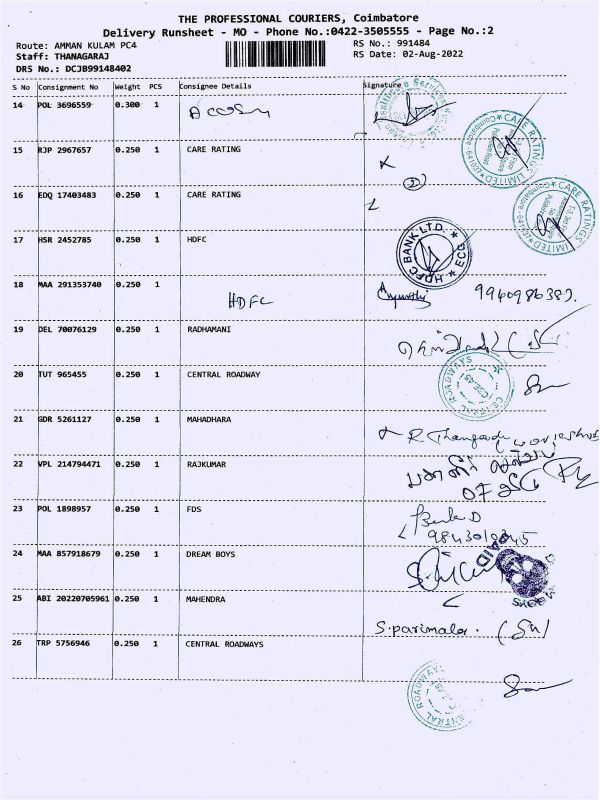 THE PROFESSIONAL COURIERS, Coimbatore
Delivery Runsheet - MO - Phone No.:0422-3505555 - Page No.:2
Route: AMMAN KULAM PC4 RS No.: 991484
Staff: THANAGARAJ RS Date: 02-Aug-2022
DRS No.: DCJB99148402
S No Consignment No Weight PCS Consignee Details Signature
14 POL 3696559 0.300 1
15 RJP 2967657 0.250 1 CARE RATING
CARE RATINGS LIMITED
16 EDQ 17403483 0.250 1 CARE RATING
CARE RATINGS LIMITED
17 HSR 2452785 0.250 1 HDFC
HDFC BANK LTD. ★ ECG ★
18 MAA 291353740 0.250 1 HDFC
19 DEL 70076129 0.250 1 RADHAMANI
20 TUT 965455 0.250 1 CENTRAL ROADWAY
CENTRAL ROADWAYS
21 GDR 5261127 0.250 1 MAHADHARA
22 VPL 214794471 0.250 1 RAJKUMAR
23 POL 1898957 0.250 1 FDS
24 MAA 857918679 0.250 1 DREAM BOYS
25 ABI 20220705961 0.250 1 MAHENDRA
S. parimala.
26 TRP 5756946 0.250 1 CENTRAL ROADWAYS
CENTRAL ROADWAYS